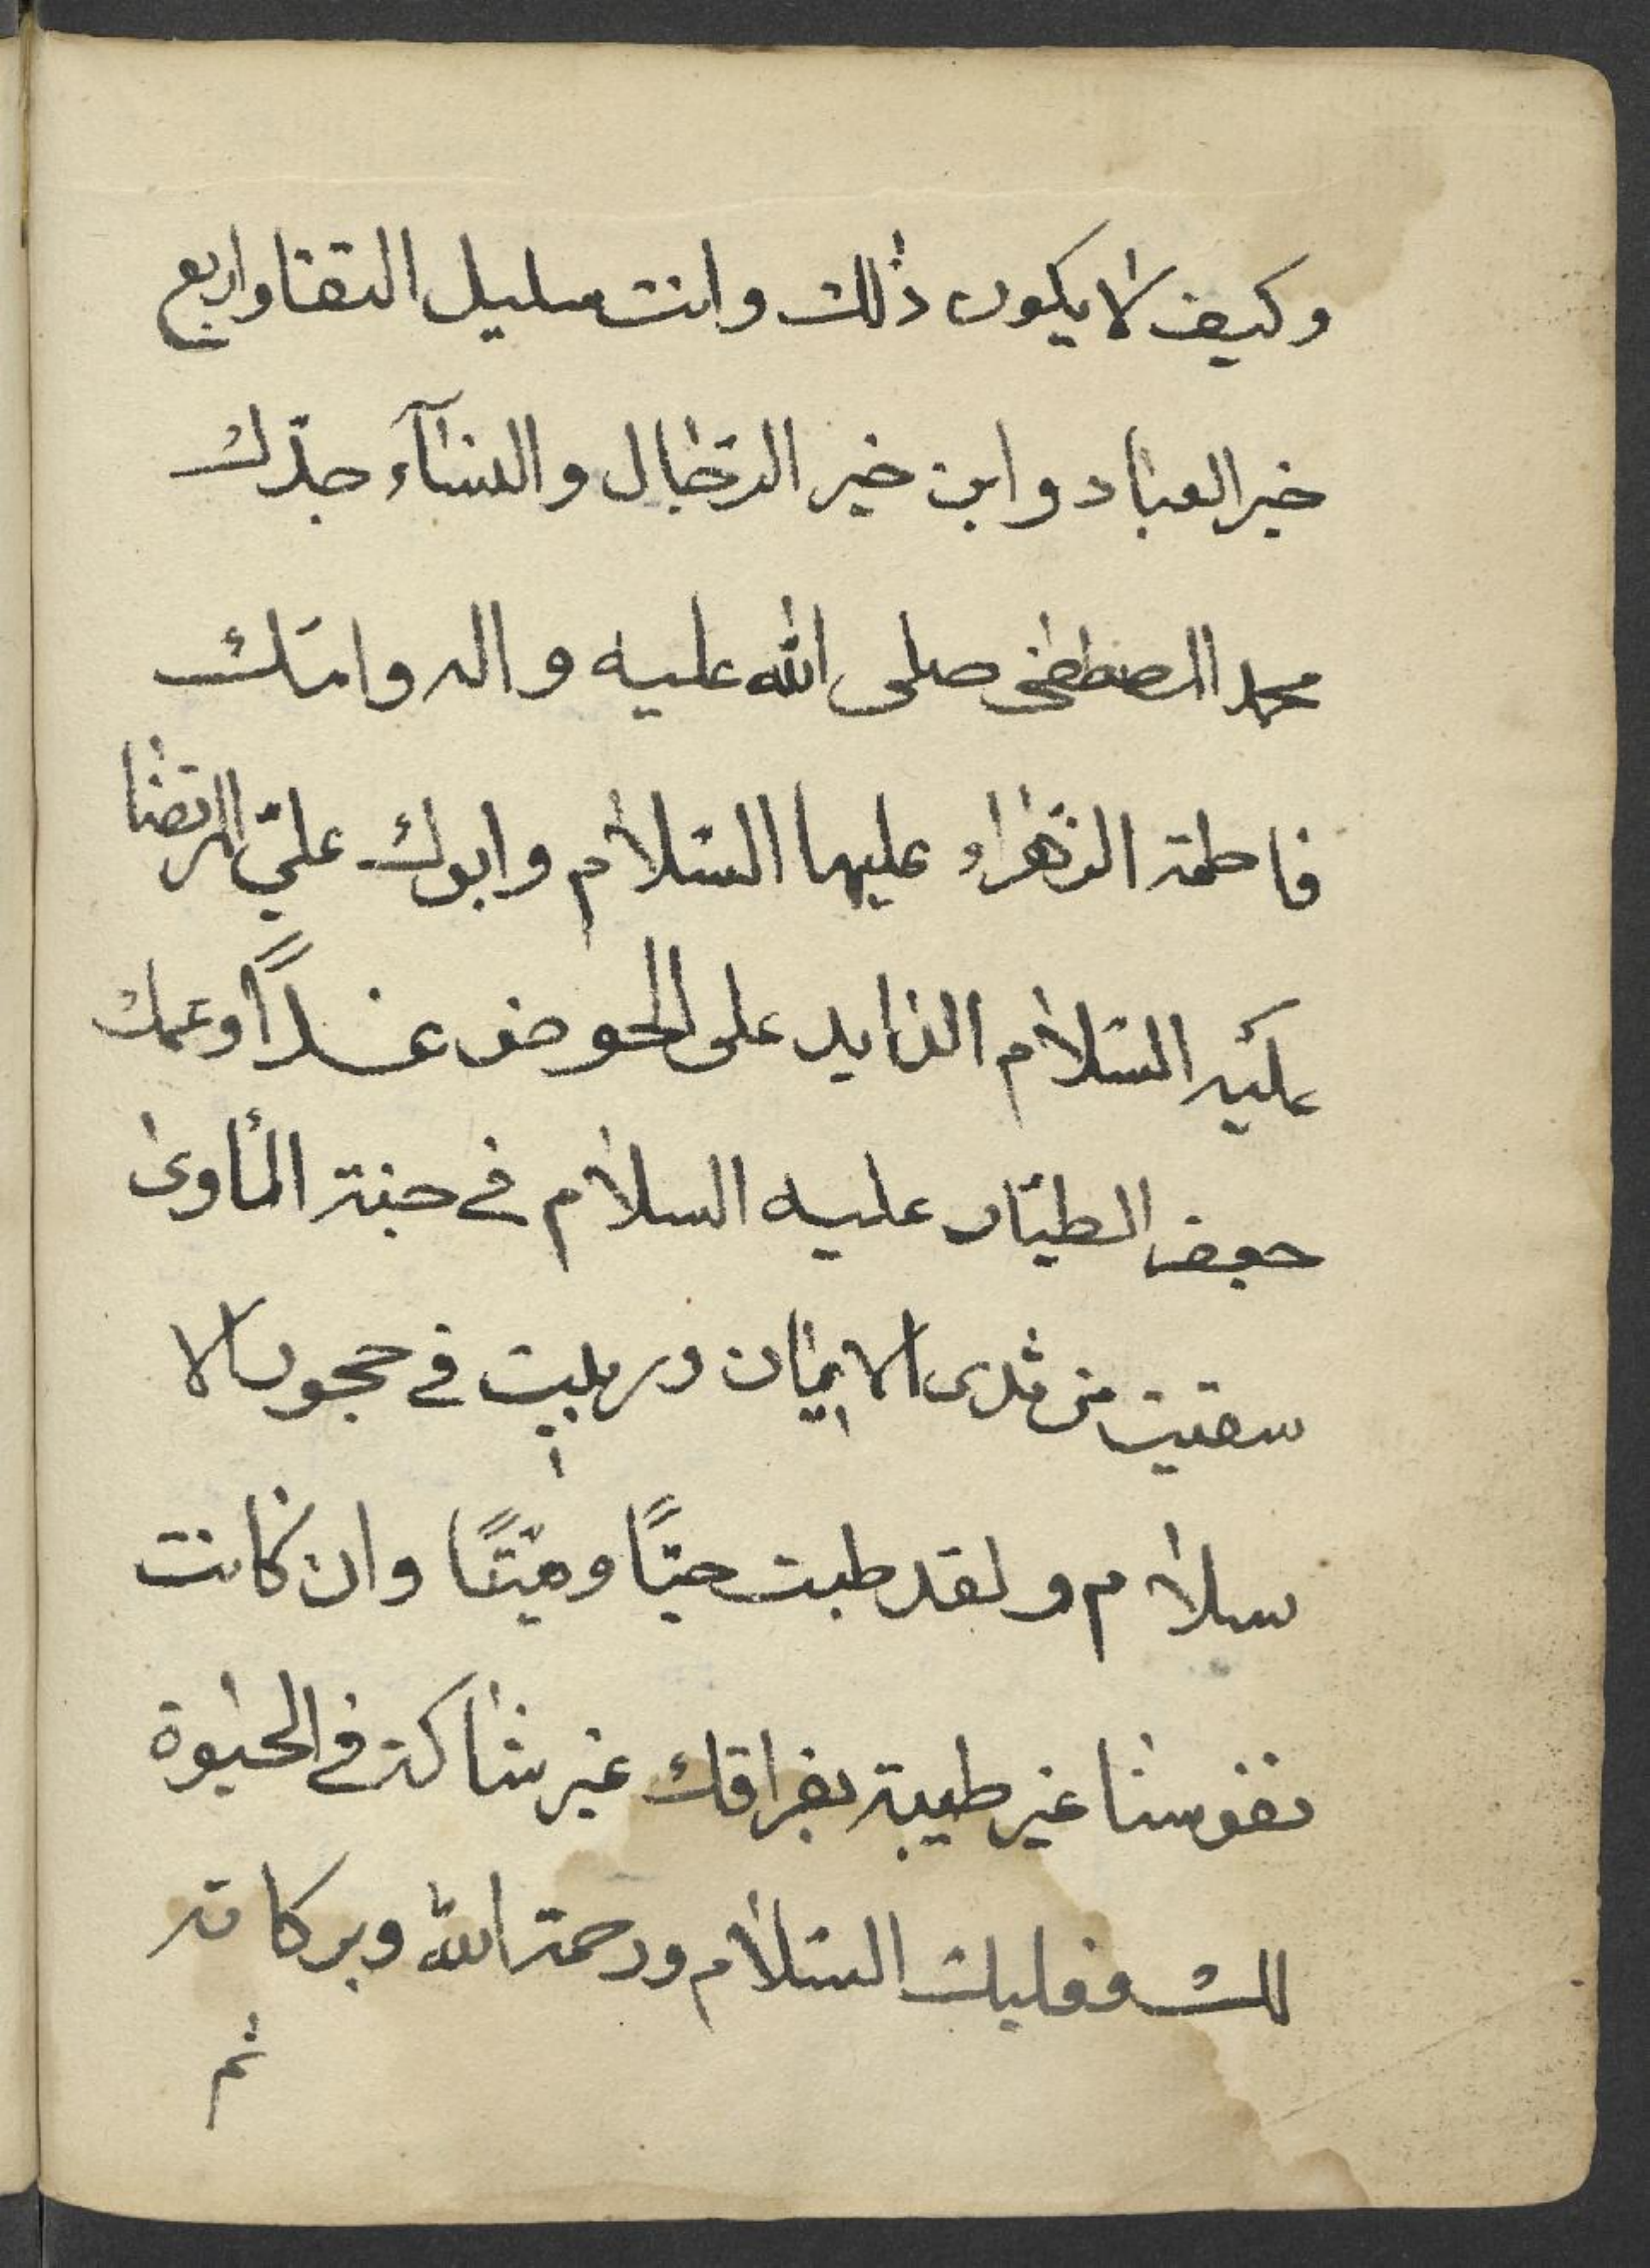 وكيف لا يكون ذلك وانت سليل التقا واربع
خير العباد وابن خير الرّجال والنسآء جدّك
محمد المصطفى صلى الله عليه واله وامّك
فاطمة الزّهراء عليها السّلام وابوك عليّ المرتضا
عليه السّلام الذايد على الحوض غداً وعمك
جعفر الطيّار عليه السلام في جنة المأوى
سقيت من ثدى الايمان وربيت في حجور الا
سلام ولقد طبت حيّاً وميّتاً وان كانت
نفوسنا غير طيبة بفراقك غير شاكة في الحيوة
لك فعليك السّلام ورحمة الله وبركاته
ثم